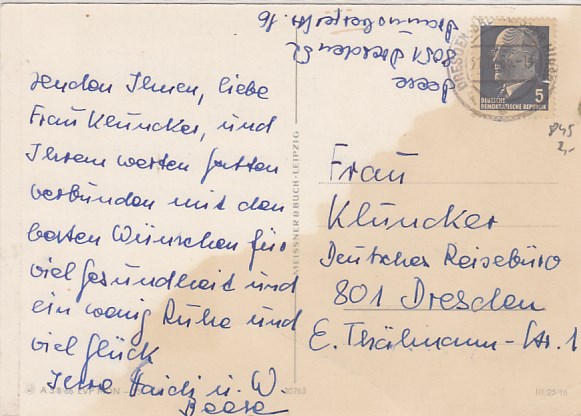 senden Ihnen, liebe
Frau Kluncker, und
Ihrem werten Gatten
verbunden mit den
besten Wünschen für
viel Gesundheit und
ein wenig Ruhe und
viel Glück
Ihre Heidi u. W.
Beese
Beese
8051 Dresden
Str. 16
DRESDEN
DEUTSCHE
DEMOKRATISCHE REPUBLIK
5
845
2,-
MEISSNER & BUCH · LEIPZIG
Frau
Kluncker
Deutsches Reisebüro
801 Dresden
E. Thälmann-Str. 1
III/25/16